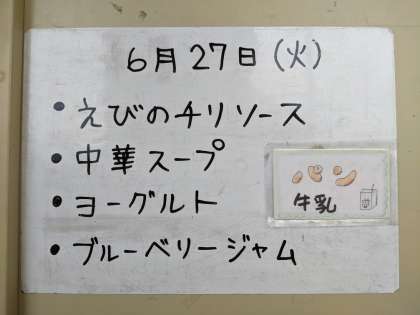 6月27日(火)
• えびのチリソース
• 中華スープ
• ヨーグルト
• ブルーベリージャム
パン
牛乳